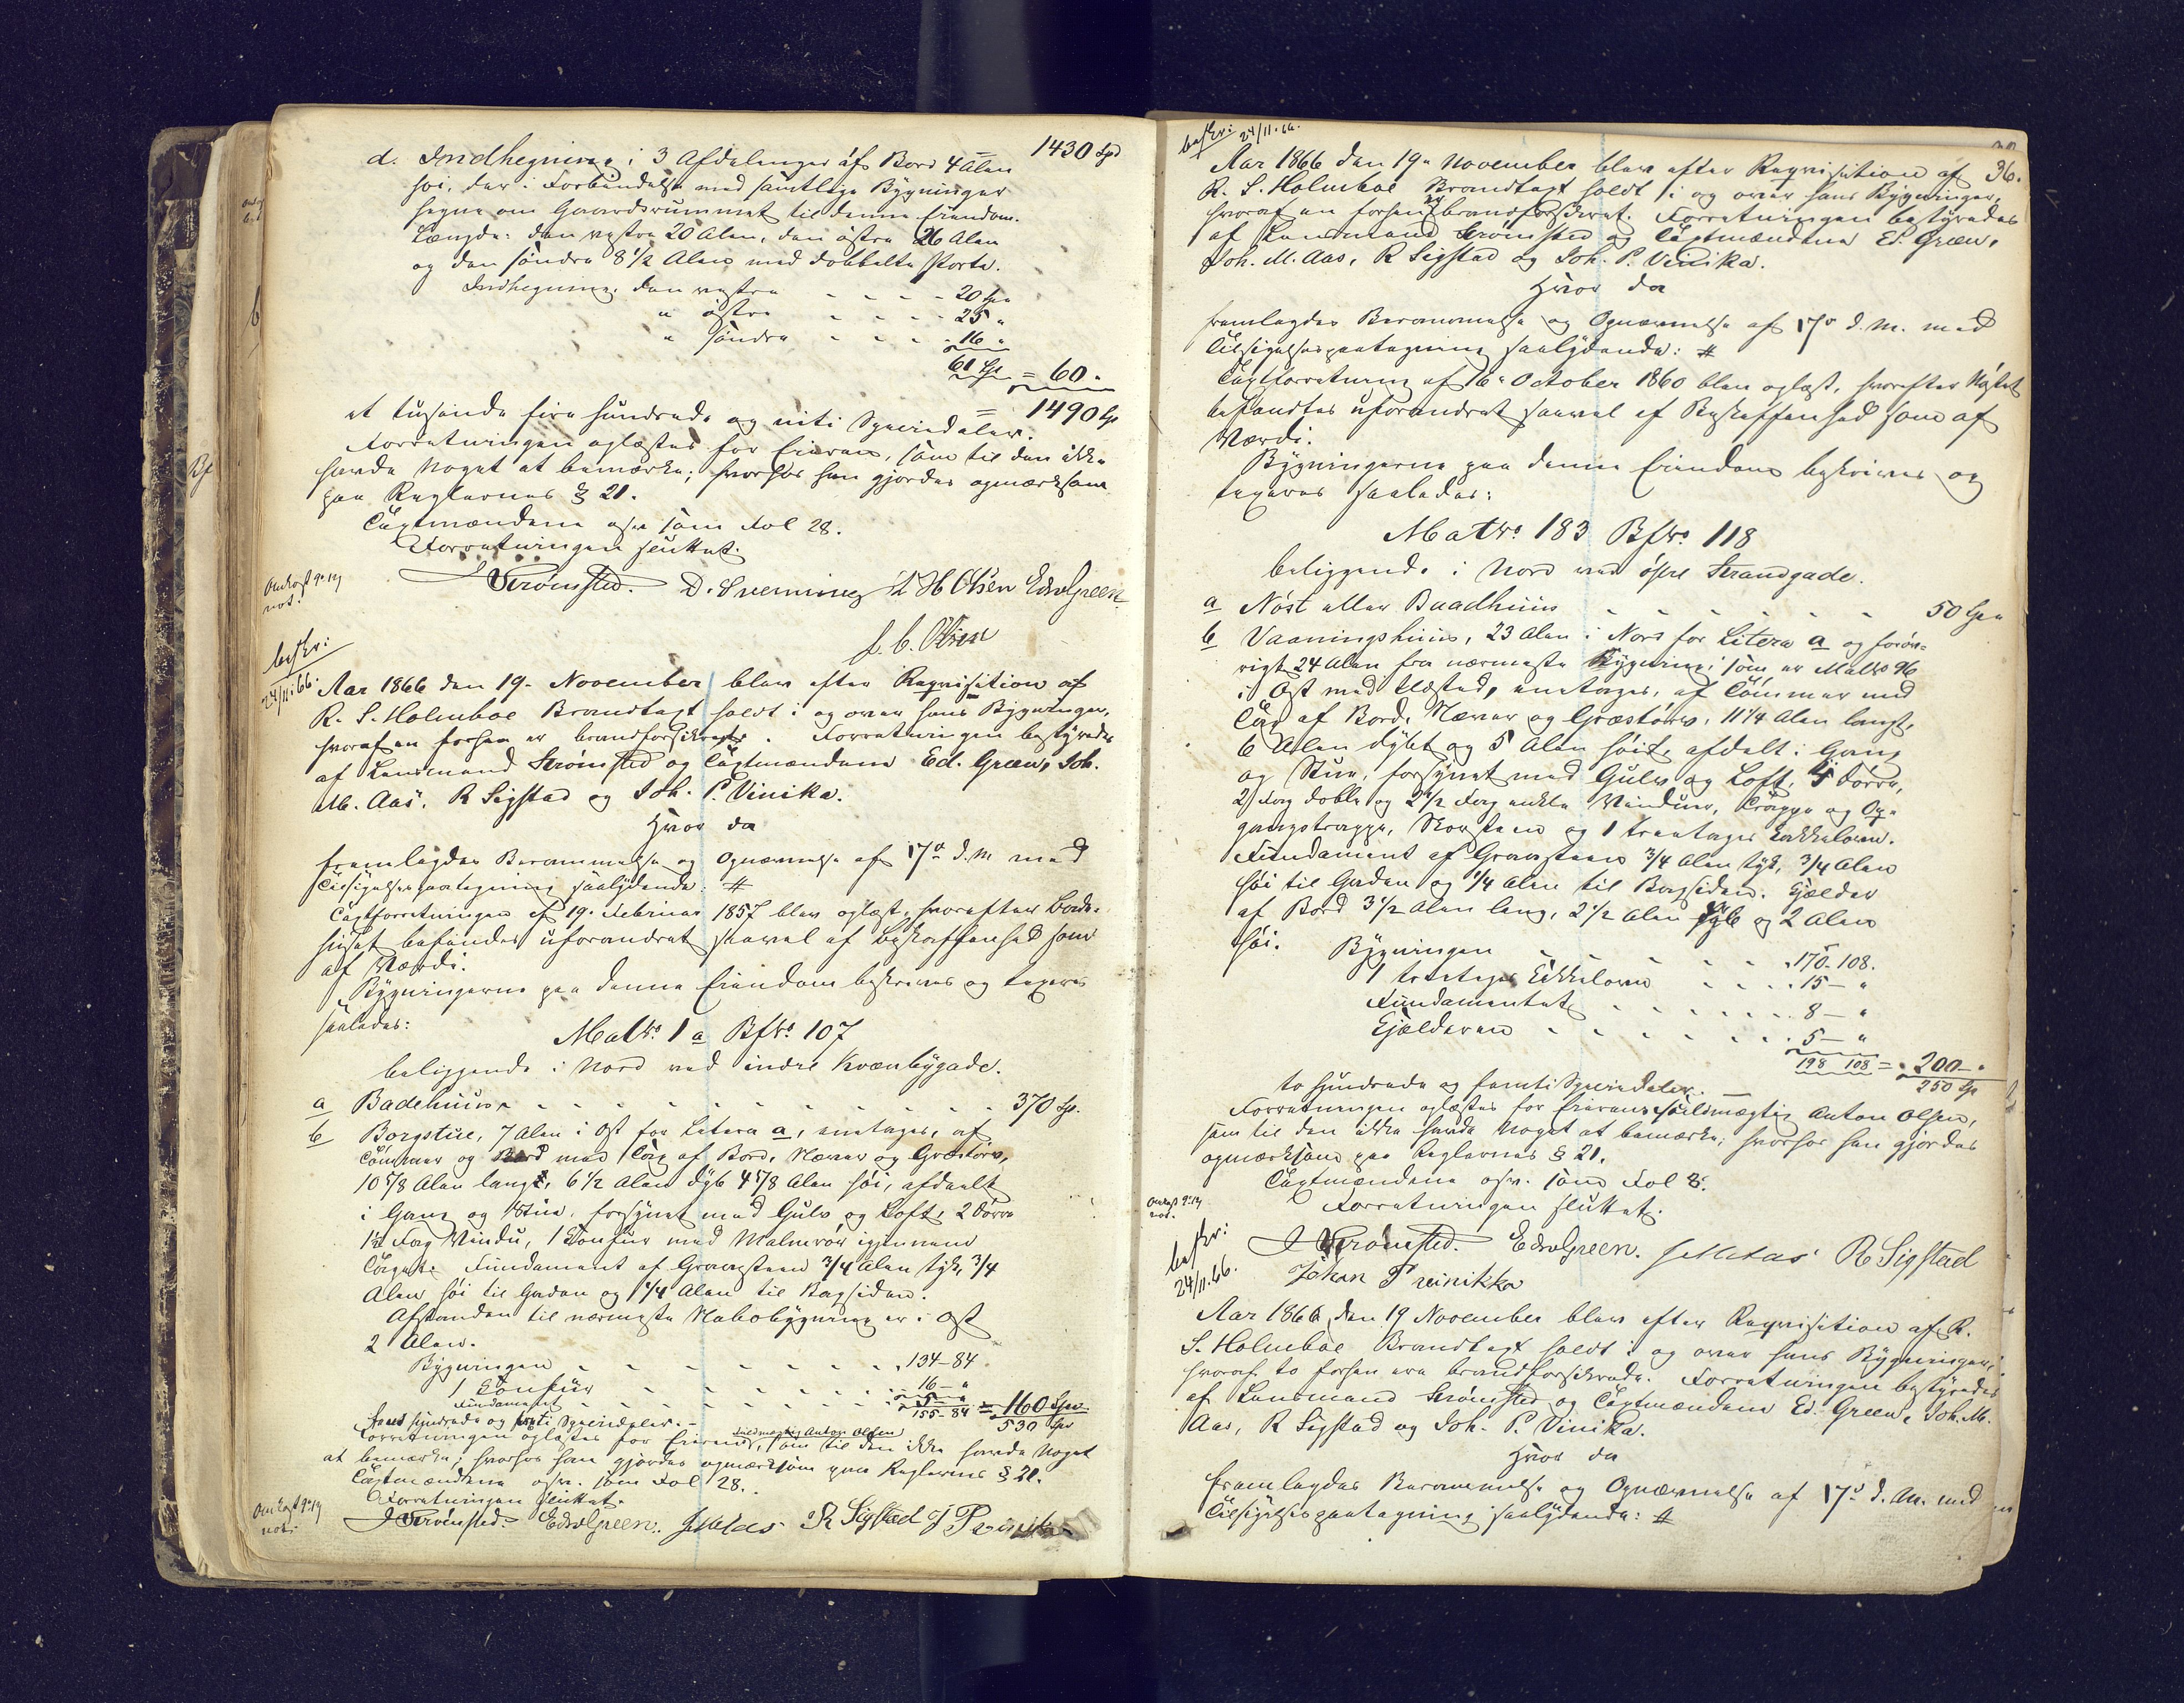 d. Indhegning i 3 Afdelinger af Bord 4 Alen = 1430 Spd
høi, der i Forbindelse med samtlige Bygninger
hegne om Gaardsrummet til denne Eiendom.
Længde: den vestre 20 Alen, den østre 26 Alen
og den søndre 8 1/2 Alen med dobbelte Porte.
Indhegning, den vestre - - - - 20 Spd
" østre - - - - 25 "
" søndre - - - - 16 "
61 Spd = 60 "
= 1490 Sp
et tusinde fire hundrede og niti Speciedaler.
Forretningen oplæstes for Eieren, som til den ikke
havde Noget at bemærke; hvorhos han gjordes opmærksom
paa Reglernes § 21.
Taxtmændene osv. som Fol 28.
Forretningen sluttet.
J Strømsted. D. Sverning L H Olsen Edv Green
J. C. Olsen
not.
beskr:
24/11 66.
Aar 1866 den 19. November blev efter Reqvisition af
R. S. Holmboe Brandtaxt holdt i og over hans Bygninger,
hvoraf en forhen er brandforsikret. Forretningen bestyredes
af Lensmand Strømsted og Taxtmændene Ed. Green, Joh.
M. Aas, R Sigstad og Joh. P. Vinika.
Hvor da
fremlagdes Berammelse og Opnævnelse af 17de d. M. med
Tilsigelsespaategning saalydende: #
Taxtforretningen af 19. Februar 1857 blev oplæst, hvorefter Bade-
huset befandtes uforandret saavel af Beskaffenhed som
af Værdi.
Bygningerne paa denne Eiendom beskrives og taxeres
saaledes:
Matr. 1 a Bfr. 107
beliggende i Nord ved indre Kvænbygade.
a Badehuus - - - - - - 370 Sp.
b Borgstue, 7 Alen i Øst for Litera a, enetages, af
Tømmer og Bord med Tag af Bord, Næver og Græstørv,
10 5/8 Alen langt, 6 1/2 Alen dyb 4 7/8 Alen høi, afdeelt
i Gang og Stue, forsynet med Gulv og Loft, 2 Dørre
1 1/2 Fag Vindu, 1 Komfur med Malmrør igjennem
Taget. Fundament af Graasteen 3/4 Alen tyk, 3/4
Alen høi til Gaden og 1/4 Alen til Bagsiden.
Afstanden til nærmeste Nabobygning er i Øst
2 Alen.
Bygningen - - - - - - 134-84
1 Komfur - - - - - - 16 - "
Fundament - - - - - - 5 - "
155-84 = 160 Spd.
530 Spd
fem hundrede og treti Speciedaler. -
Forretningen oplæstes for Eierens fuldmægtig Anton Olsen, som til den ikke havde Noget
at bemærke; hvorhos han gjordes opmærksom paa Reglernes § 21.
Taxtmændene osv. som Fol 28.
Forretningen sluttet.
not.
J Strømsted. Edv Green. J M Aas R Sigstad J P
beskr: 24/11.66.
36.
Aar 1866 den 19. November blev efter Reqvisition af
R. S. Holmboe Brandtaxt holdt i og over hans Bygninger,
hvoraf en forhen er brandforsikret. Forretningen bestyredes
af Lensmand Strømsted og Taxtmændene Ed. Green,
Joh. M. Aas, R Sigstad og Joh. P. Vinika.
Hvor da
fremlagdes Berammelse og Opnævnelse af 17de d. M. med
Tilsigelsespaategning saalydende: #
Taxtforretning af 16. October 1860 blev oplæst, hvorefter Nøstet
befandtes uforandret saavel af Beskaffenhed som af
Værdi.
Bygningerne paa denne Eiendom beskrives og
taxeres saaledes:
Matr. 183 Bfr. 118
beliggende i Nord ved øvre Strandgade.
a Nøst eller Baadhuus - - - - - - 50 Spd
b Vaaningshuus, 23 Alen i Nord for Litera a og forøv-
rigt 24 Alen fra nærmeste Bygning, som er Matr 96
i Øst med Ildsted, enetages, af Tømmer med
Tag af Bord, Næver og Græstørv, 11 1/4 Alen langt,
6 Alen dybt og 5 Alen høit, afdelt i Gang
og Stue, forsynet med Gulv og Loft, 5 Dørre,
2 Fag doble og 2 1/2 Fag enkle Vinduer, Trappe og Op-
gangstrappe, Skorsteen og 1 treetages Kakkelovn.
Fundament af Graasteen 3/4 Alen tyk, 3/4 Alen
høi til Gaden og 1/4 Alen til Bagsiden. Kjælder
af Bord 3 1/2 Alen lang, 2 1/2 Alen dyb og 2 Alen
høi.
Bygningen - - - - - 170-108.
1 treetages Kakkelovn - - - - 15 - "
Fundamentet - - - - - - 8 - "
Kjælderen - - - - - - 5 - "
198 108 = 200 - "
250 Sp
to hundrede og femti Speciedaler.
Forretningen oplæstes for Eierens fuldmægtig Anton Olsen,
som til den ikke havde Noget at bemærke; hvorhos han gjordes
opmærksom paa Reglernes § 21.
Taxtmændene osv. som Fol 8.
Forretningen sluttet.
not.
J Strømsted. Edv Green. J M Aas R Sigstad
Johan P Vinikka
beskr:
24/11.66.
Aar 1866, den 19 November blev efter Reqvisition af R.
S. Holmboe Brandtaxt holdt i og over hans Bygninger,
hvoraf to forhen ere brandforsikrede. Forretningen bestyredes
af Lensmand Strømsted og Taxtmændene Ed. Green, Joh. M.
Aas, R Sigstad og Joh. P. Vinika.
Hvor da
fremlagdes Berammelse og Opnævnelse af 17de d. M. med
Tilsigelsespaategning saalydende: #